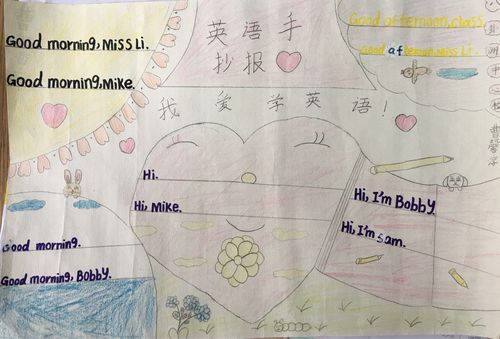 英语手
抄报
我爱学英语!
Good morning, Miss Li.
Good morning, Mike.
Good afternoon, class.
Good afternoon, Miss Li.
Hi.
Hi, Mike.
Hi, I'm Bobby.
Hi, I'm Sam.
Good morning.
Good morning, Bobby.
中心校